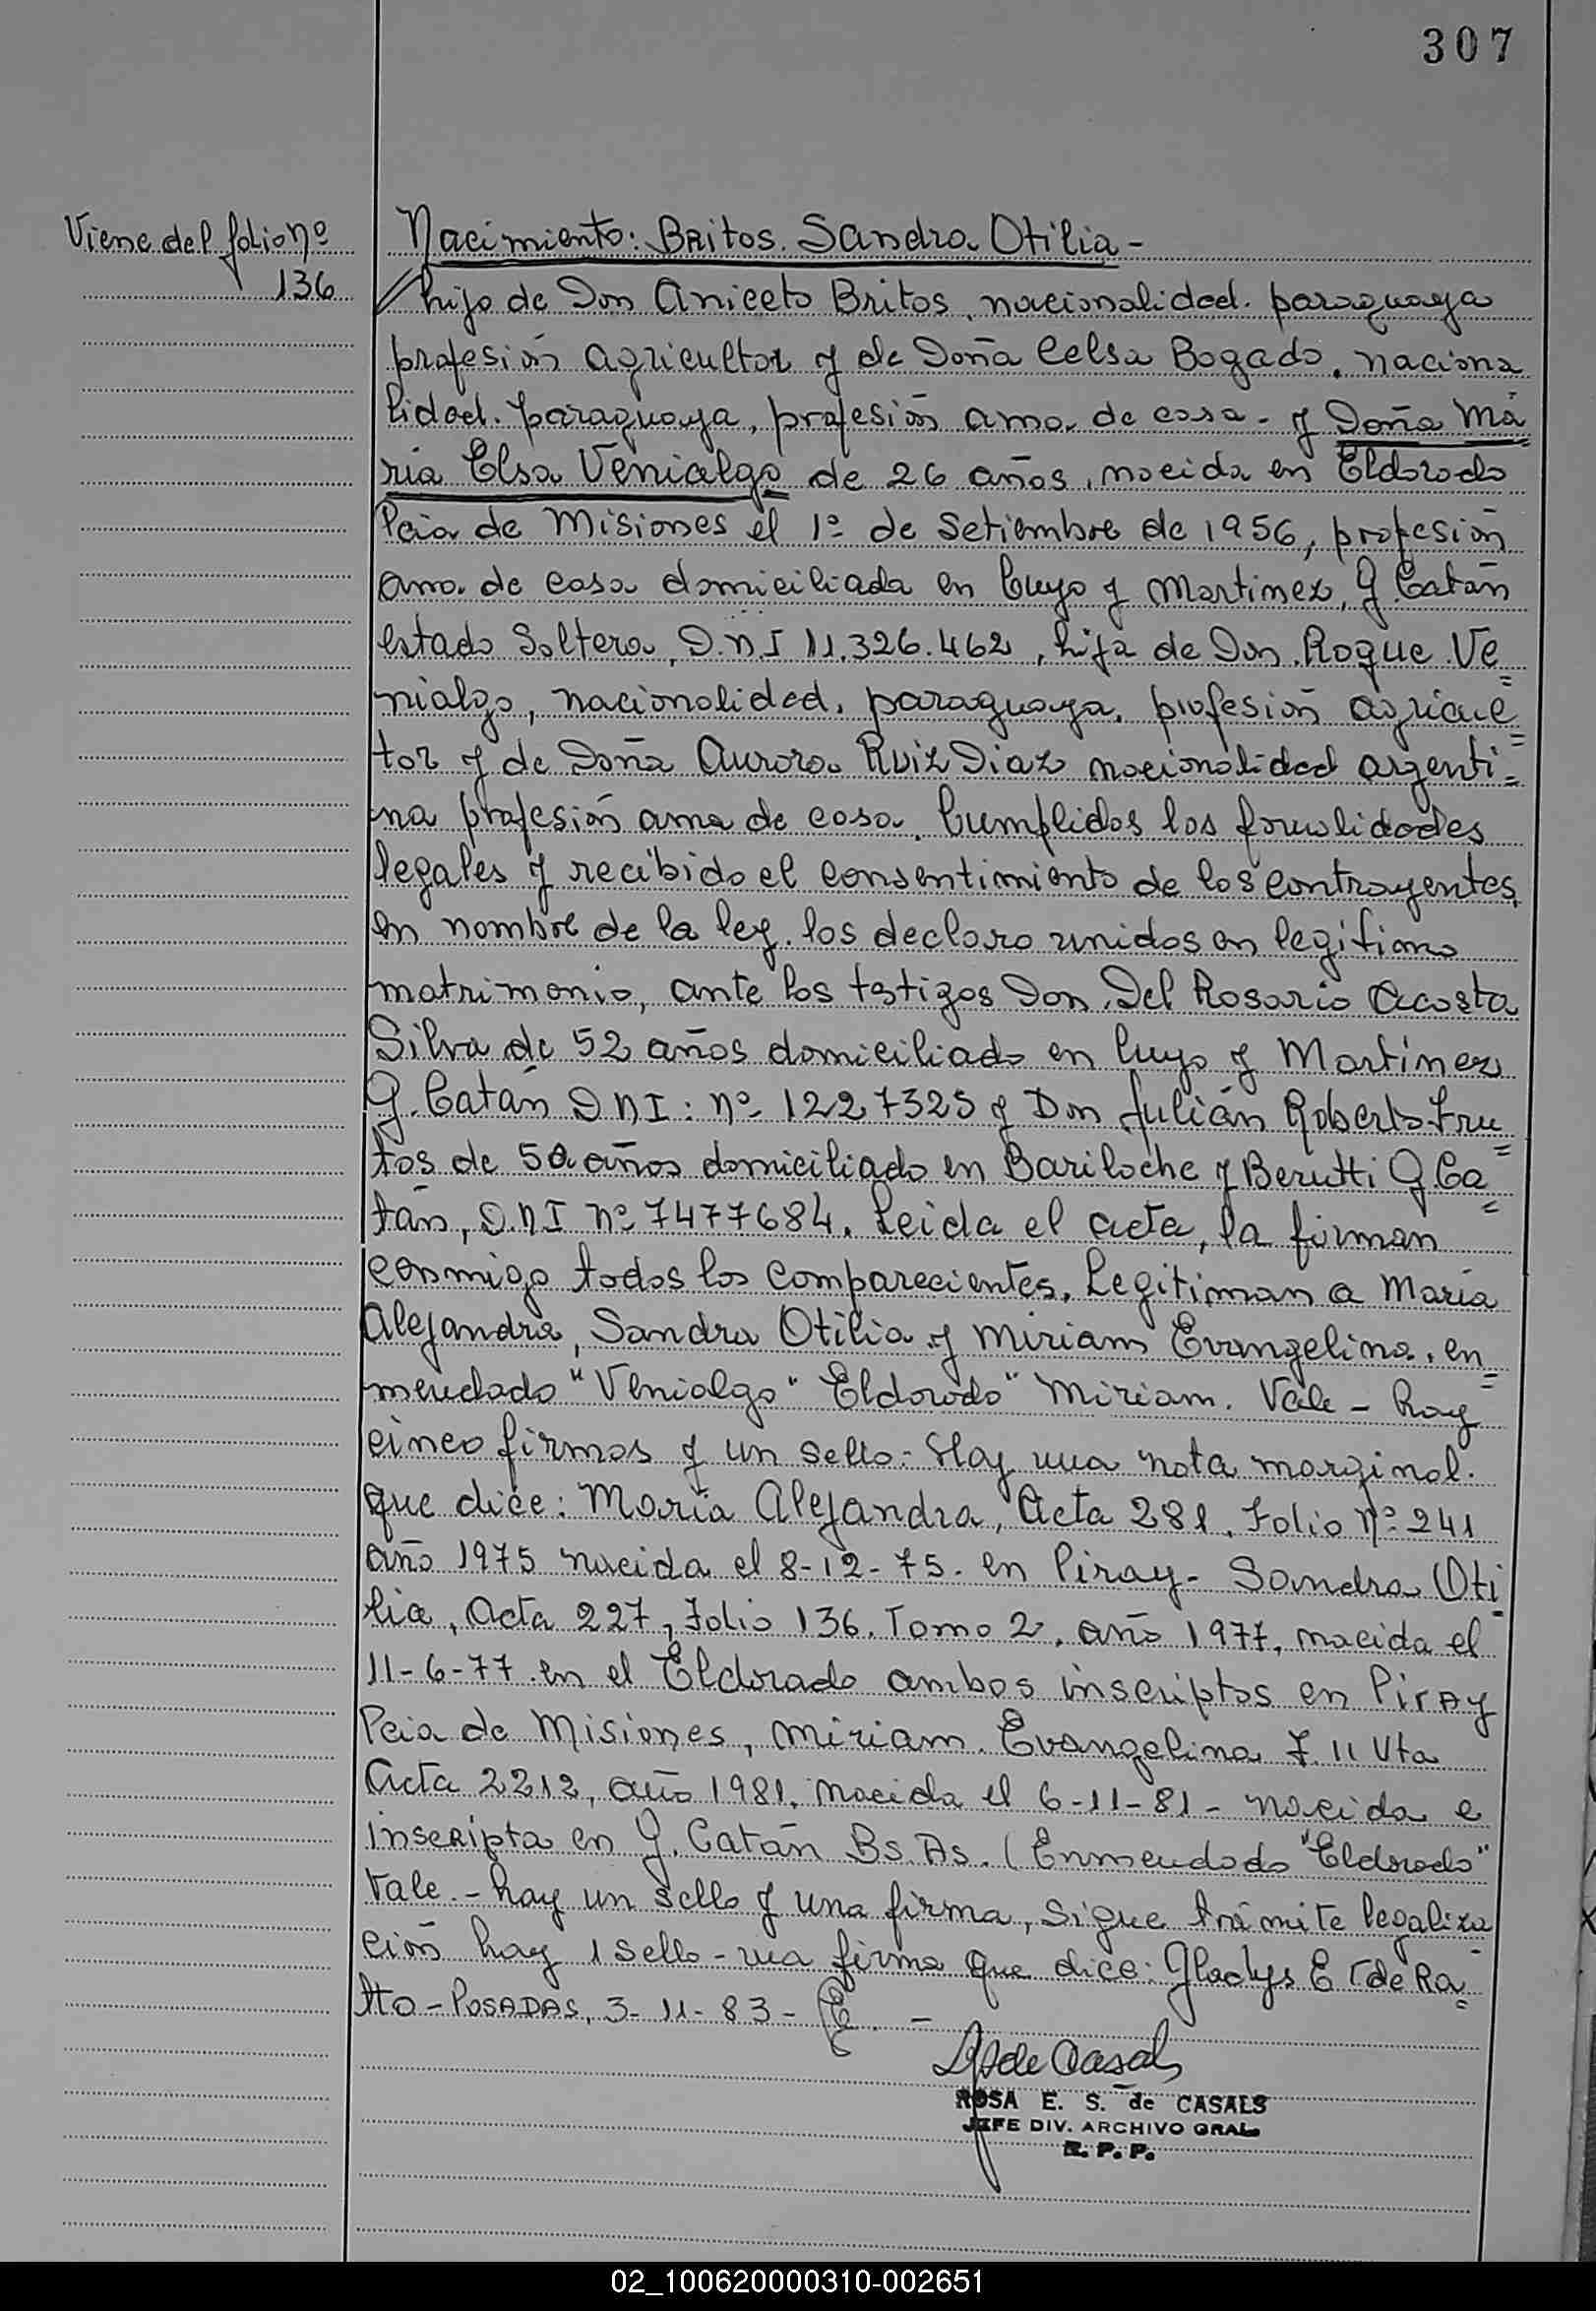 307
Viene del folio nº
136
Nacimiento: Britos. Sandra Otilia -
hijo de Don Aniceto Britos, nacionalidad. paraguaya
profesión agricultor y de Doña Celsa Bogado, naciona
lidad. paraguaya, profesión ama de casa - y Doña Ma
ria Elsa Venialgo de 26 años, nacida en Eldorado
Pcia de Misiones el 1º de Setiembre de 1956, profesión
ama de casa domiciliada en Cuyo y Martinez, G Catán
estado Soltera, D.N.I 11.326.462, hija de Don. Roque Ve
nialgo, nacionalidad, paraguaya, profesión agricul
tor y de Doña Aurora Ruiz Diaz nacionalidad argenti=
na profesión ama de casa. Cumplidos los formalidades
legales y recibido el consentimiento de los contrayentes,
en nombre de la ley. los declaro unidos en legitimo
matrimonio, ante los testigos Don. Del Rosario Acosta
Silva de 52 años domiciliado en Cuyo y Martínez
G. Catán DNI: nº 1227325 y Don Julián Roberto Fru=
tos de 50 años domiciliado en Bariloche y Berutti G Ca=
tán, D.N.I nº 7477684. Leida el acta, la firman
conmigo todos los comparecientes. Legitiman a María
Alejandra, Sandra Otilia y Miriam Evangelina. en=
mendado "Venialgo" "Eldorado" Miriam. Vale - hay
cinco firmas y un sello - Hay una nota marginal.
que dice: María Alejandra, Acta 281, Folio nº 241
año 1975 nacida el 8-12-75. en Piray - Sandra Oti
lia, Acta 227, Folio 136. Tomo 2, año 1977, nacida el
11-6-77 en el Eldorado ambos inscriptos en Piray
Pcia de Misiones, Miriam. Evangelina F. 11 Vta
Acta 2212, año 1981, nacida el 6-11-81 - nacida e
inscripta en G. Catán Bs. As. (Enmendado "Eldorado"
Vale. - hay un sello y una firma, sigue trámite legaliza
ción hay 1 sello - una firma que dice: Gladys E T de Ra=
tto - Posadas, 3-11-83 -
ROSA E. S. de CASALS
JEFE DIV. ARCHIVO GRAL.
R. P. P.
02_100620000310-002651